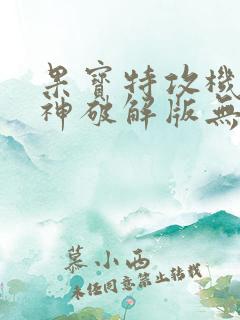 果寶特攻機
神破解版無
慕小西
未经同意禁止转载